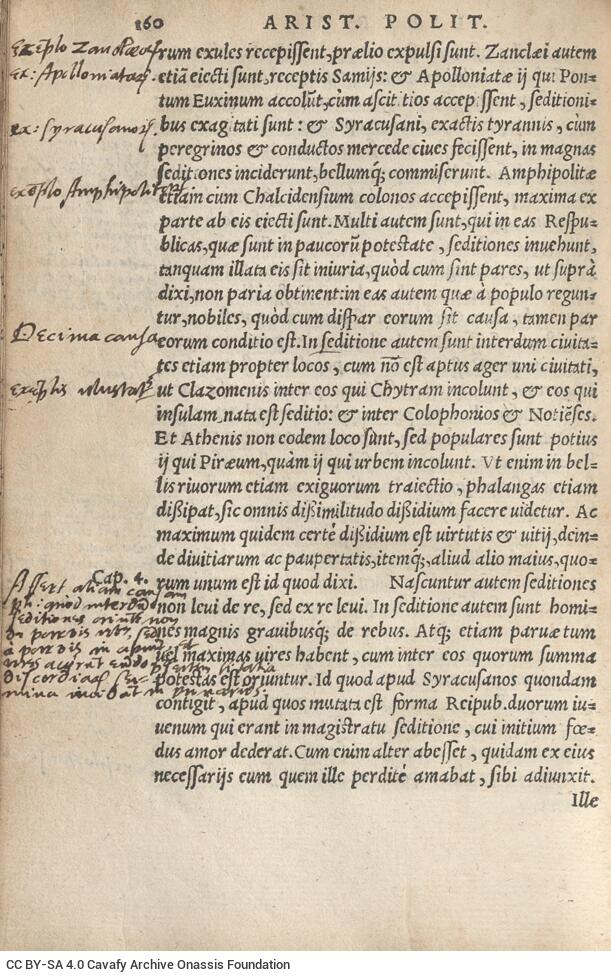 160 ARIST. POLIT.
rum exules recepissent, prælio expulsi sunt. Zanclæi autem
etiã eiecti sunt, receptis Samijs: & Apolloniatæ ij qui Pon-
tum Euxinum accolũt, cùm ascititios accepissent, seditioni-
bus exagitati sunt: & Syracusani, exactis tyrannis, cùm
peregrinos & conductos mercede ciues fecissent, in magnas
seditiones inciderunt, bellumq́; commiserunt. Amphipolitæ
etiam cum Chalcidensium colonos accepissent, maxima ex
parte ab eis eiecti sunt. Multi autem sunt, qui in eas Respu-
blicas, quæ sunt in paucorũ potestate, seditiones inuehunt,
tanquam illata eis sit iniuria, quòd cum sint pares, ut suprà
dixi, non paria obtinent: in eas autem quæ à populo regun-
tur, nobiles, quòd cum dispar eorum sit causa, tamen par
Decima causa
eorum conditio est. In seditione autem sunt interdum ciuita-
tes etiam propter locos, cum nõ est aptus ager uni ciuitati,
ut Clazomenis inter eos qui Chytram incolunt, & eos qui
insulam, nata est seditio: & inter Colophonios & Notiẽses.
Et Athenis non eodem loco sunt, sed populares sunt potius
ij qui Piræum, quàm ij qui urbem incolunt. Vt enim in bel-
lis riuorum etiam exiguorum traiectio, phalangas etiam
dißipat, sic omnis dißimilitudo dißidium facere uidetur. Ac
maximum quidem certè dißidium est uirtutis & uitij, dein-
de diuitiarum ac paupertatis, itemq́;, aliud alio maius, quo-
Cap. 4.
rum unum est id quod dixi. Nascuntur autem seditiones
non leui de re, sed ex re leui. In seditione autem sunt homi-
nes magnis grauibusq́; de rebus. Atq; etiam paruæ tum
uel maximas uires habent, cum inter eos quorum summa
potestas est oriuntur. Id quod apud Syracusanos quondam
contigit, apud quos mutata est forma Reipub. duorum iu-
uenum qui erant in magistratu seditione, cui initium fœ-
dus amor dederat. Cum enim alter abesset, quidam ex eius
necessarijs eum quem ille perditè amabat, sibi adiunxit.
Ille
CC BY-SA 4.0 Cavafy Archive Onassis Foundation